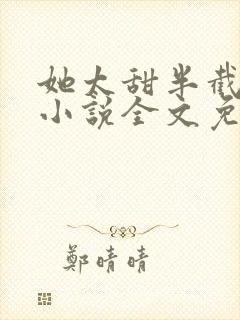 她太甜半截
小說全文免
鄭晴晴